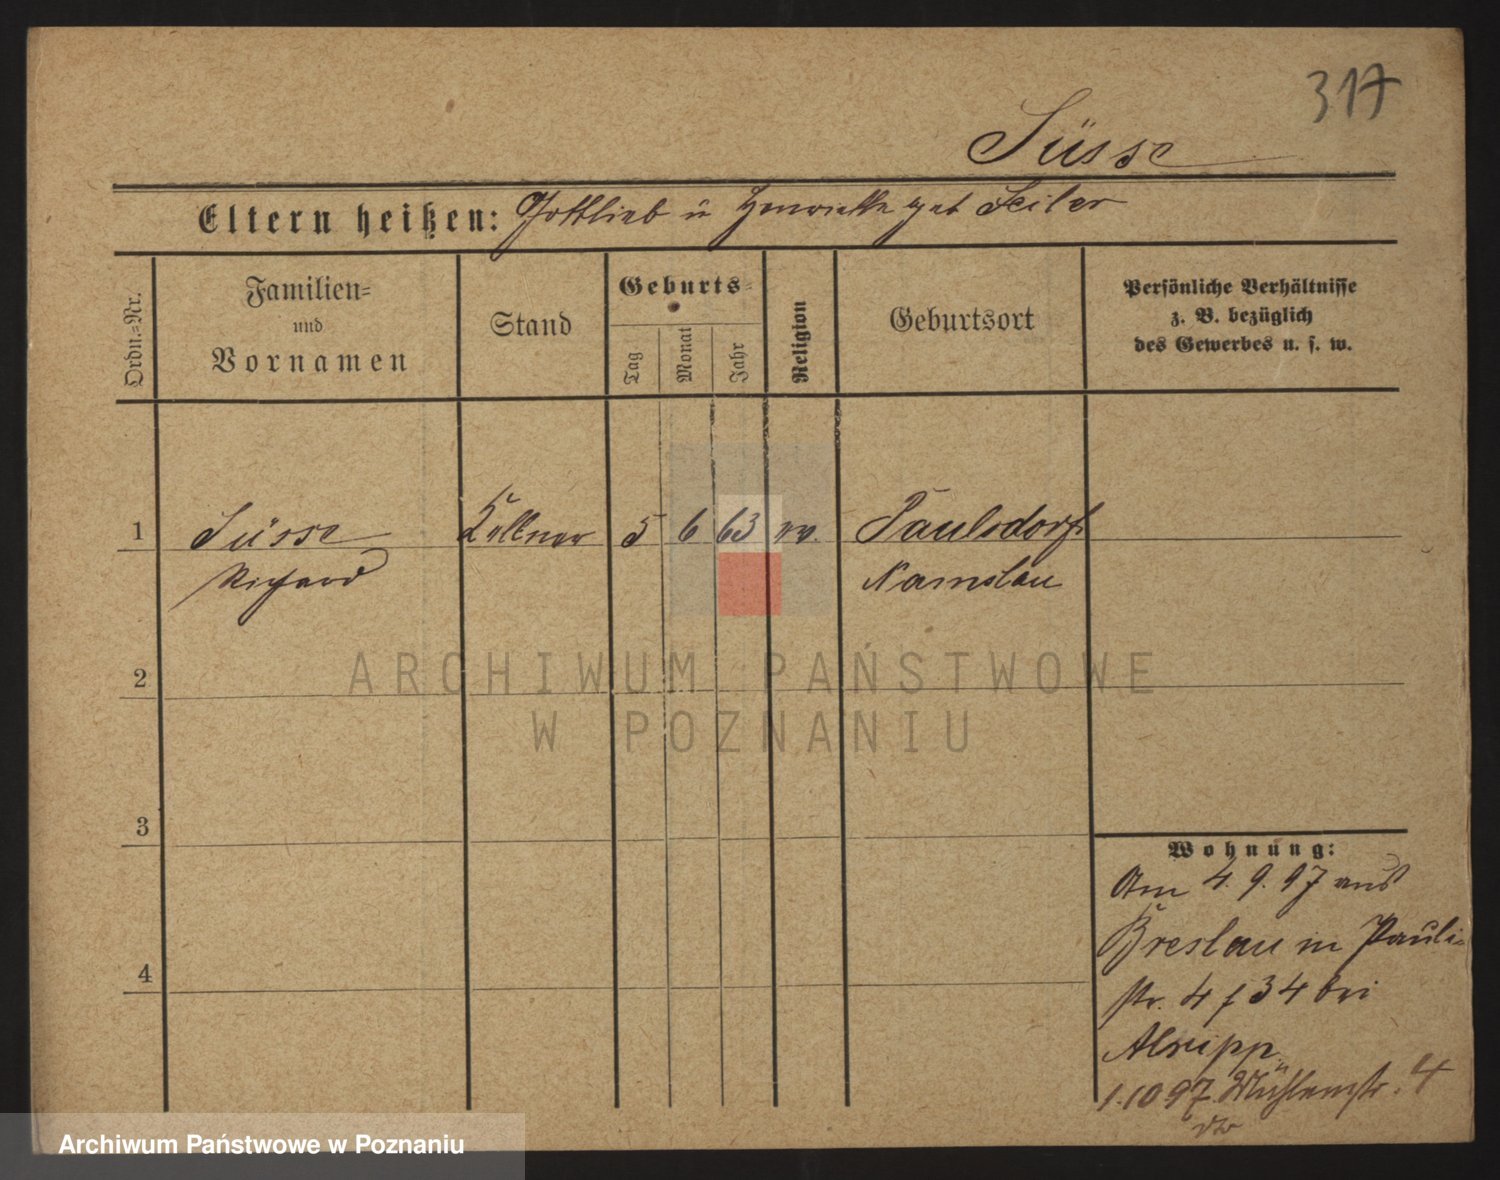 317
Süsse
Eltern heißen: Gottlieb u Henriette geb Seiler
Ordn.=Nr.
Familien=
und
Vornamen
Stand
Geburts=
Tag
Monat
Jahr
Religion
Geburtsort
Persönliche Verhältnisse
z. B. bezüglich
des Gewerbes u. s. w.
1 Süsse Kellner 5 6 63 ev. Paulsdorf
Richard Namslau
2
3
4
Wohnung:
Am 4. 9. 97 aus
Breslau in Pauli=
str. 4 / 34 bei
1.10 97. Mühlenstr. 4
ARCHIWUM PAŃSTWOWE
W POZNANIU
Archiwum Państwowe w Poznaniu